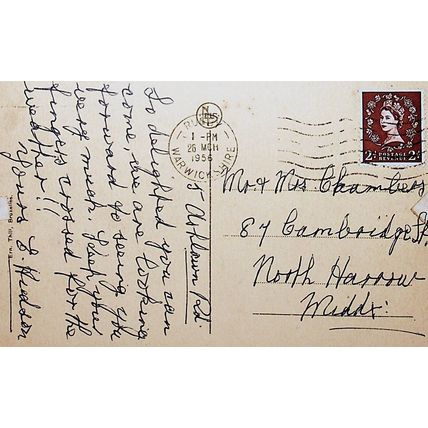 5 Rd.
So delighted you can
come. We are looking
forward to seeing you
very much. Keep your
fingers crossed for the
weather!!
Yours E.
Ern. Thill, Bruxelles.
1 - PM
26 MCH
1956
WARWICKSHIRE
2D POSTAGE 2D
REVENUE
Mr & Mrs Chambers
87 Cambridge
North Harrow
Middx: